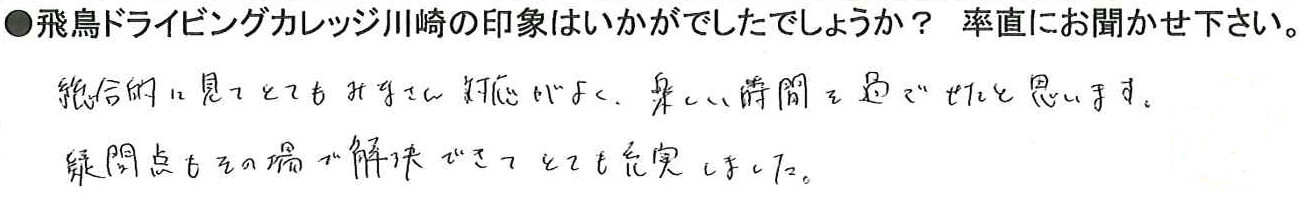 ●飛鳥ドライビングカレッジ川崎の印象はいかがでしたでしょうか？ 率直にお聞かせ下さい。
総合的に見てとてもみなさん対応がよく、楽しい時間を過ごせたと思います。
疑問点もその場で解決できてとても充実しました。